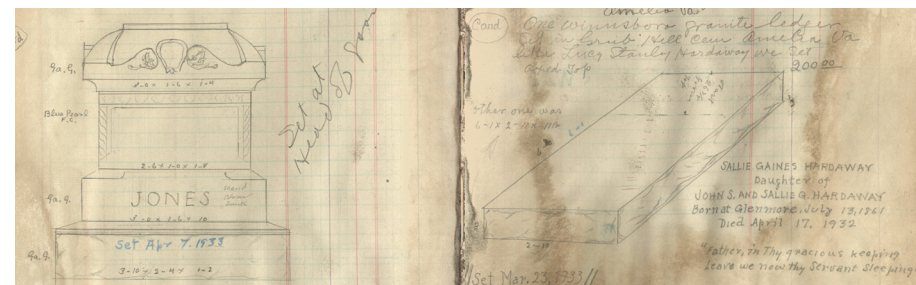 Ga. G.
3-0 x 1-6 x 1-4
Blue Pearl
2-6 x 1-0 x 1-8
Ga. G.
JONES
Hand
3-0 x 1-6 x 10
Set Apr 7. 1933
Ga. G.
3-10 x 2-4 x 1-2
Set at
Head of
Amelia Va.
Cond
One Winnsboro granite ledger
Set in Grub Hill Cem Amelia Va
like Lucy Stanly Hardaway we set
Top
200.00
other one was
6-1
2-10
SALLIE GAINES HARDAWAY
Daughter of
JOHN S. AND SALLIE G. HARDAWAY
Born at Glenmore, July 13, 1861
Died April 17, 1932
"Father, in Thy gracious keeping
Leave we now thy Servant sleeping"
//Set Mar. 23, 1933//